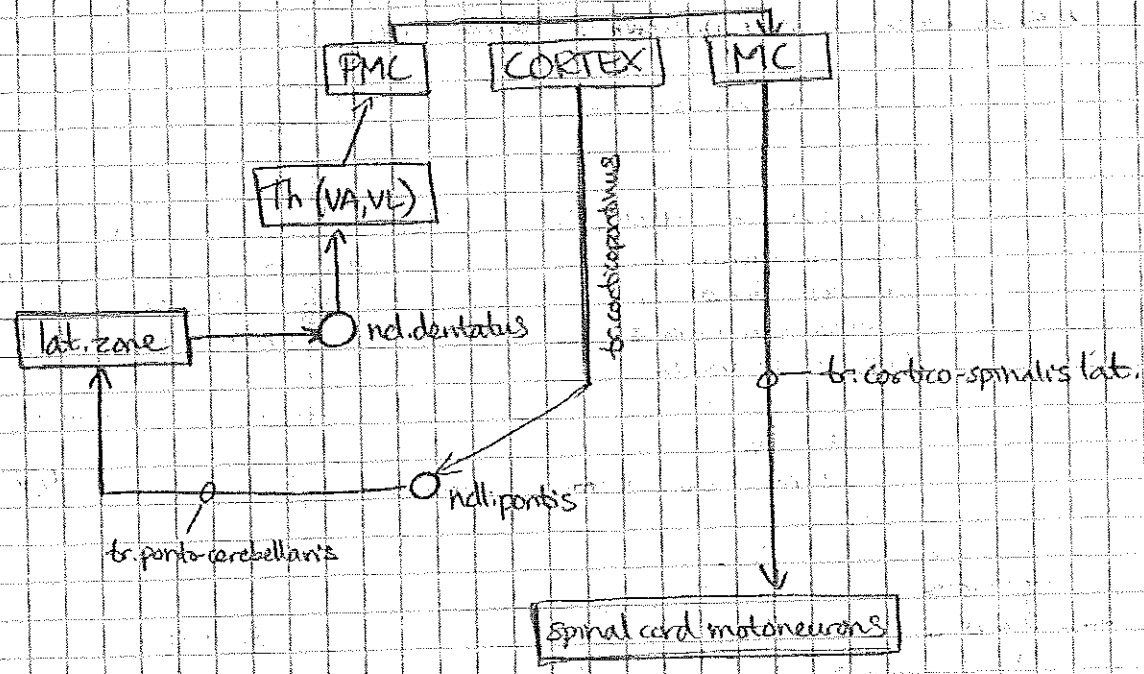 PMC
CORTEX
MC
Th (VA,VL)
tr.corticopontinus
lat.zone
ncl.dentatus
tr.cortico-spinalis lat.
ncll.pontis
tr.ponto-cerebellaris
spinal cord motoneurons